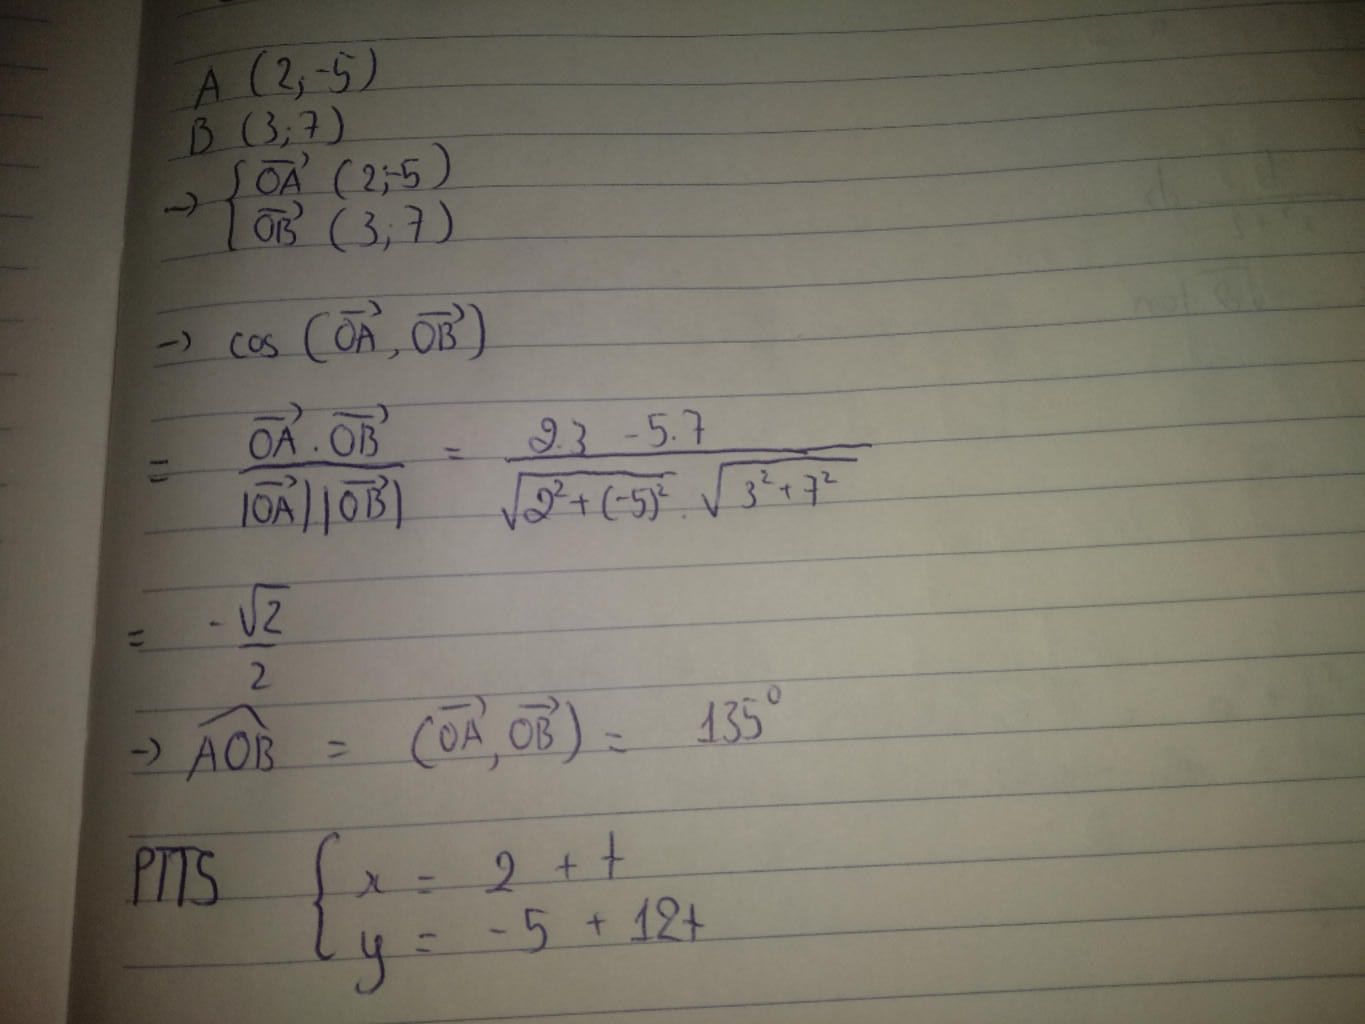 A (2;-5)
B (3;7)
→ { OA→ (2;-5)
OB→ (3;7)
→ cos (OA→, OB→)
= OA→ . OB→ / |OA→| |OB→| = 2.3 -5.7 / √(2² + (-5)²) . √(3² + 7²)
= -√2 / 2
→ AOB^ = (OA→, OB→) = 135°
PTTS { x = 2 + t
y = -5 + 12t